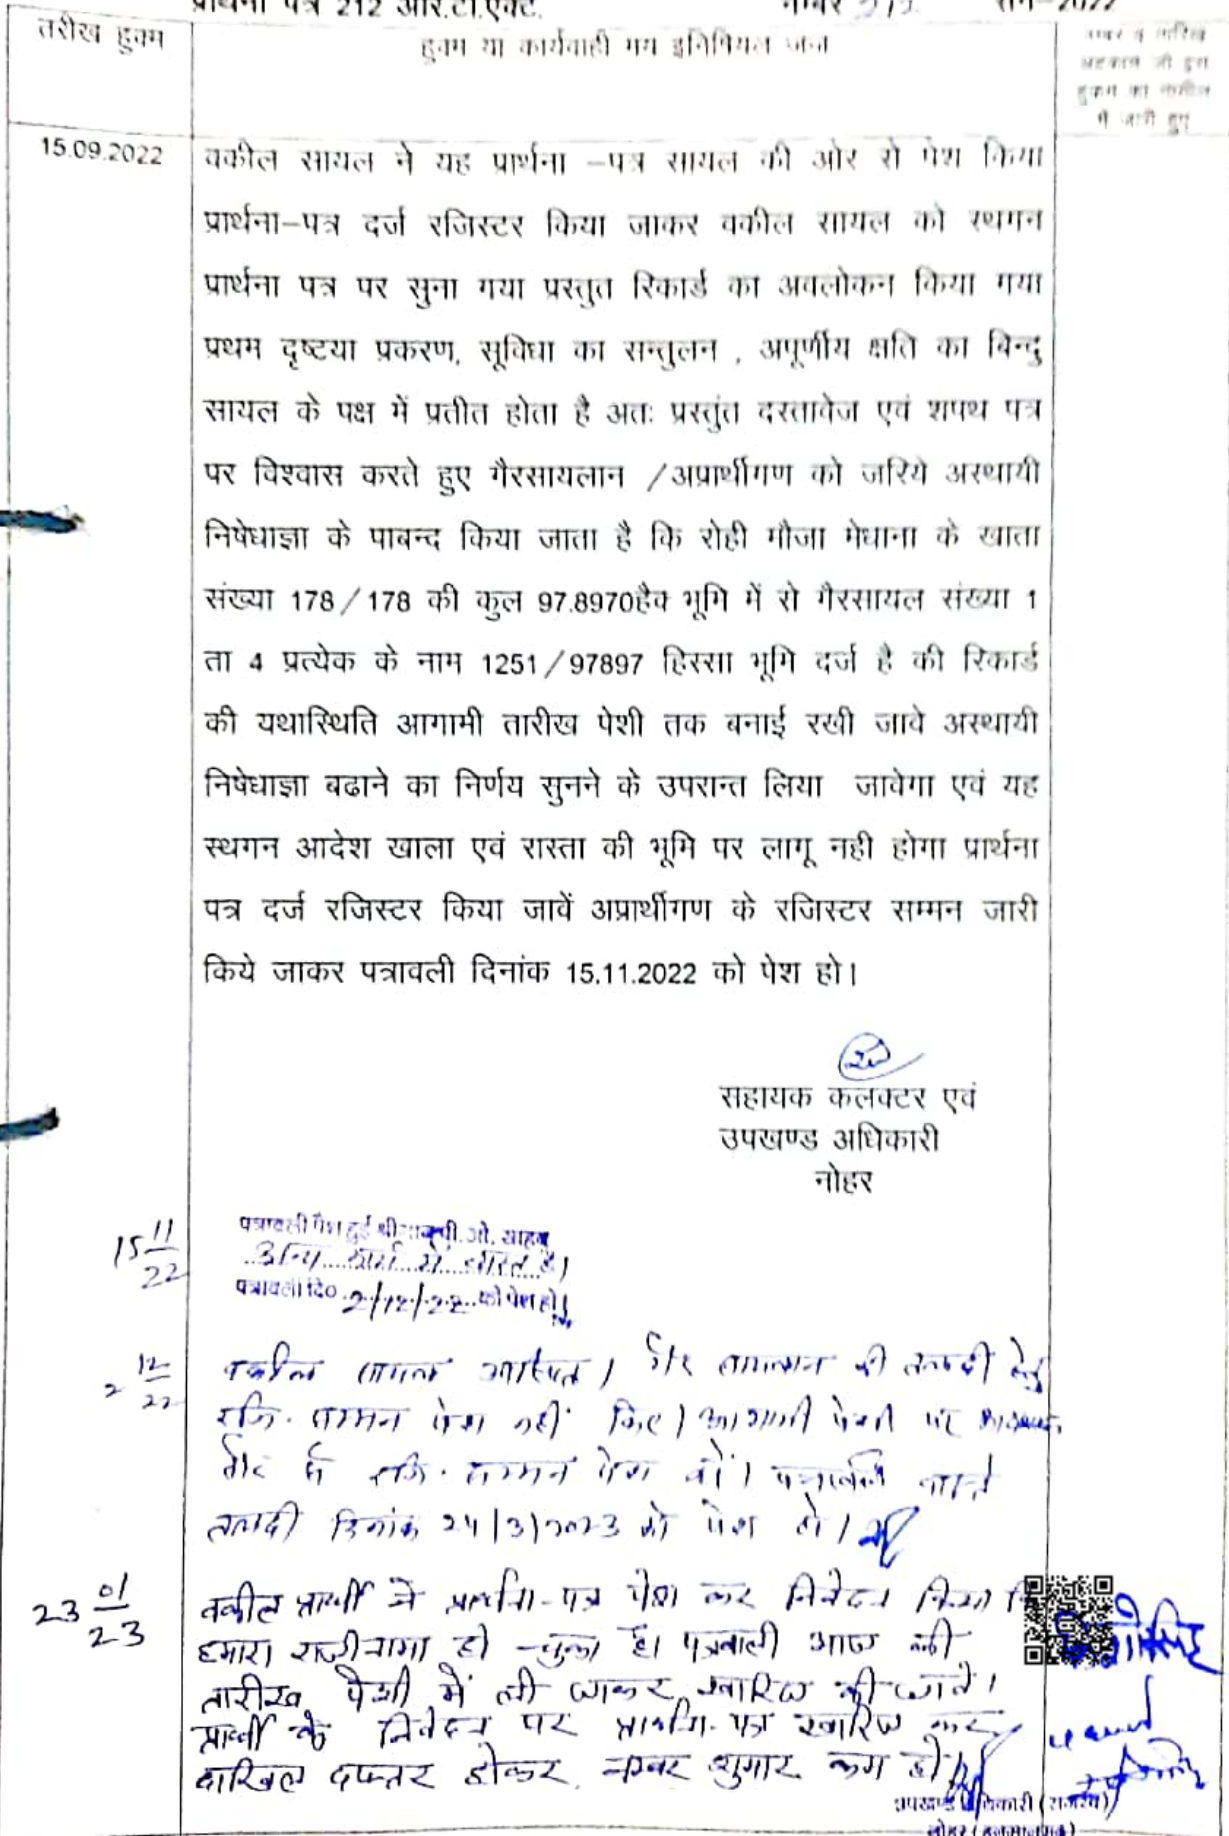 प्रार्थना पत्र 212 आर.टी.एक्ट. नम्बर सन-2022
तरीख हुक्म
हुक्म या कार्यवाही मय इनिषियल जज
नम्बर व तारिख
अहकाम जो इस
हुकम की तामील
में जारी हुए
15.09.2022
वकील सायल ने यह प्रार्थना –पत्र सायल की ओर से पेश किया
प्रार्थना–पत्र दर्ज रजिस्टर किया जाकर वकील सायल को स्थगन
प्रार्थना पत्र पर सुना गया प्रस्तुत रिकार्ड का अवलोकन किया गया
प्रथम दृष्टया प्रकरण, सूविधा का सन्तुलन , अपूर्णीय क्षति का बिन्दु
सायल के पक्ष में प्रतीत होता है अतः प्रस्तुंत दस्तावेज एवं शपथ पत्र
पर विश्वास करते हुए गैरसायलान /अप्रार्थीगण को जरिये अस्थायी
निषेधाज्ञा के पाबन्द किया जाता है कि रोही मौजा मेधाना के खाता
संख्या 178/178 की कुल 97.8970हैक भूमि में से गैरसायल संख्या 1
ता 4 प्रत्येक के नाम 1251/97897 हिस्सा भूमि दर्ज है की रिकार्ड
की यथास्थिति आगामी तारीख पेशी तक बनाई रखी जावे अस्थायी
निषेधाज्ञा बढाने का निर्णय सुनने के उपरान्त लिया जावेगा एवं यह
स्थगन आदेश खाला एवं रास्ता की भूमि पर लागू नही होगा प्रार्थना
पत्र दर्ज रजिस्टर किया जावें अप्रार्थीगण के रजिस्टर सम्मन जारी
किये जाकर पत्रावली दिनांक 15.11.2022 को पेश हो।
सहायक कलक्टर एवं
उपखण्ड अधिकारी
नोहर
15 11/22
पत्रावली पेश हुई श्रीमान् पी.ओ. साहब
अन्य कार्य में व्यस्त है।
पत्रावली दि० 2/12/22 को पेश हो।
2 12/22
वकील सायल उपस्थित। गैर सायलान की तलबी हेतु
रजि. सम्मन पेश नहीं किए। आगामी पेशी पर
गैर के रजि. सम्मन पेश करें। पत्रावली वास्ते
तलबी दिनांक 24/3/2023 को पेश हो।
23 01/23
वकील प्रार्थी ने प्रार्थना-पत्र पेश कर निवेदन किया कि
हमारा राजीनामा हो चुका है। पत्रवाली आज की
तारीख पेशी में ली जाकर खारिज की जावे।
प्रार्थी के निवेदन पर प्रार्थना-पत्र खारिज कर
दाखिल दफ्तर होकर नम्बर शुमार कम हो।
उपखण्ड अधिकारी (राजस्व)
नोहर (हनुमानगढ़)